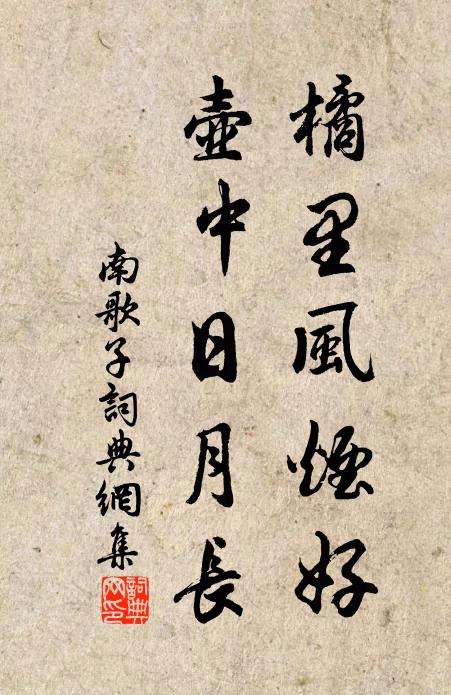 橘里風煙好
壺中日月長
南歌子詞典網集
詞典網印